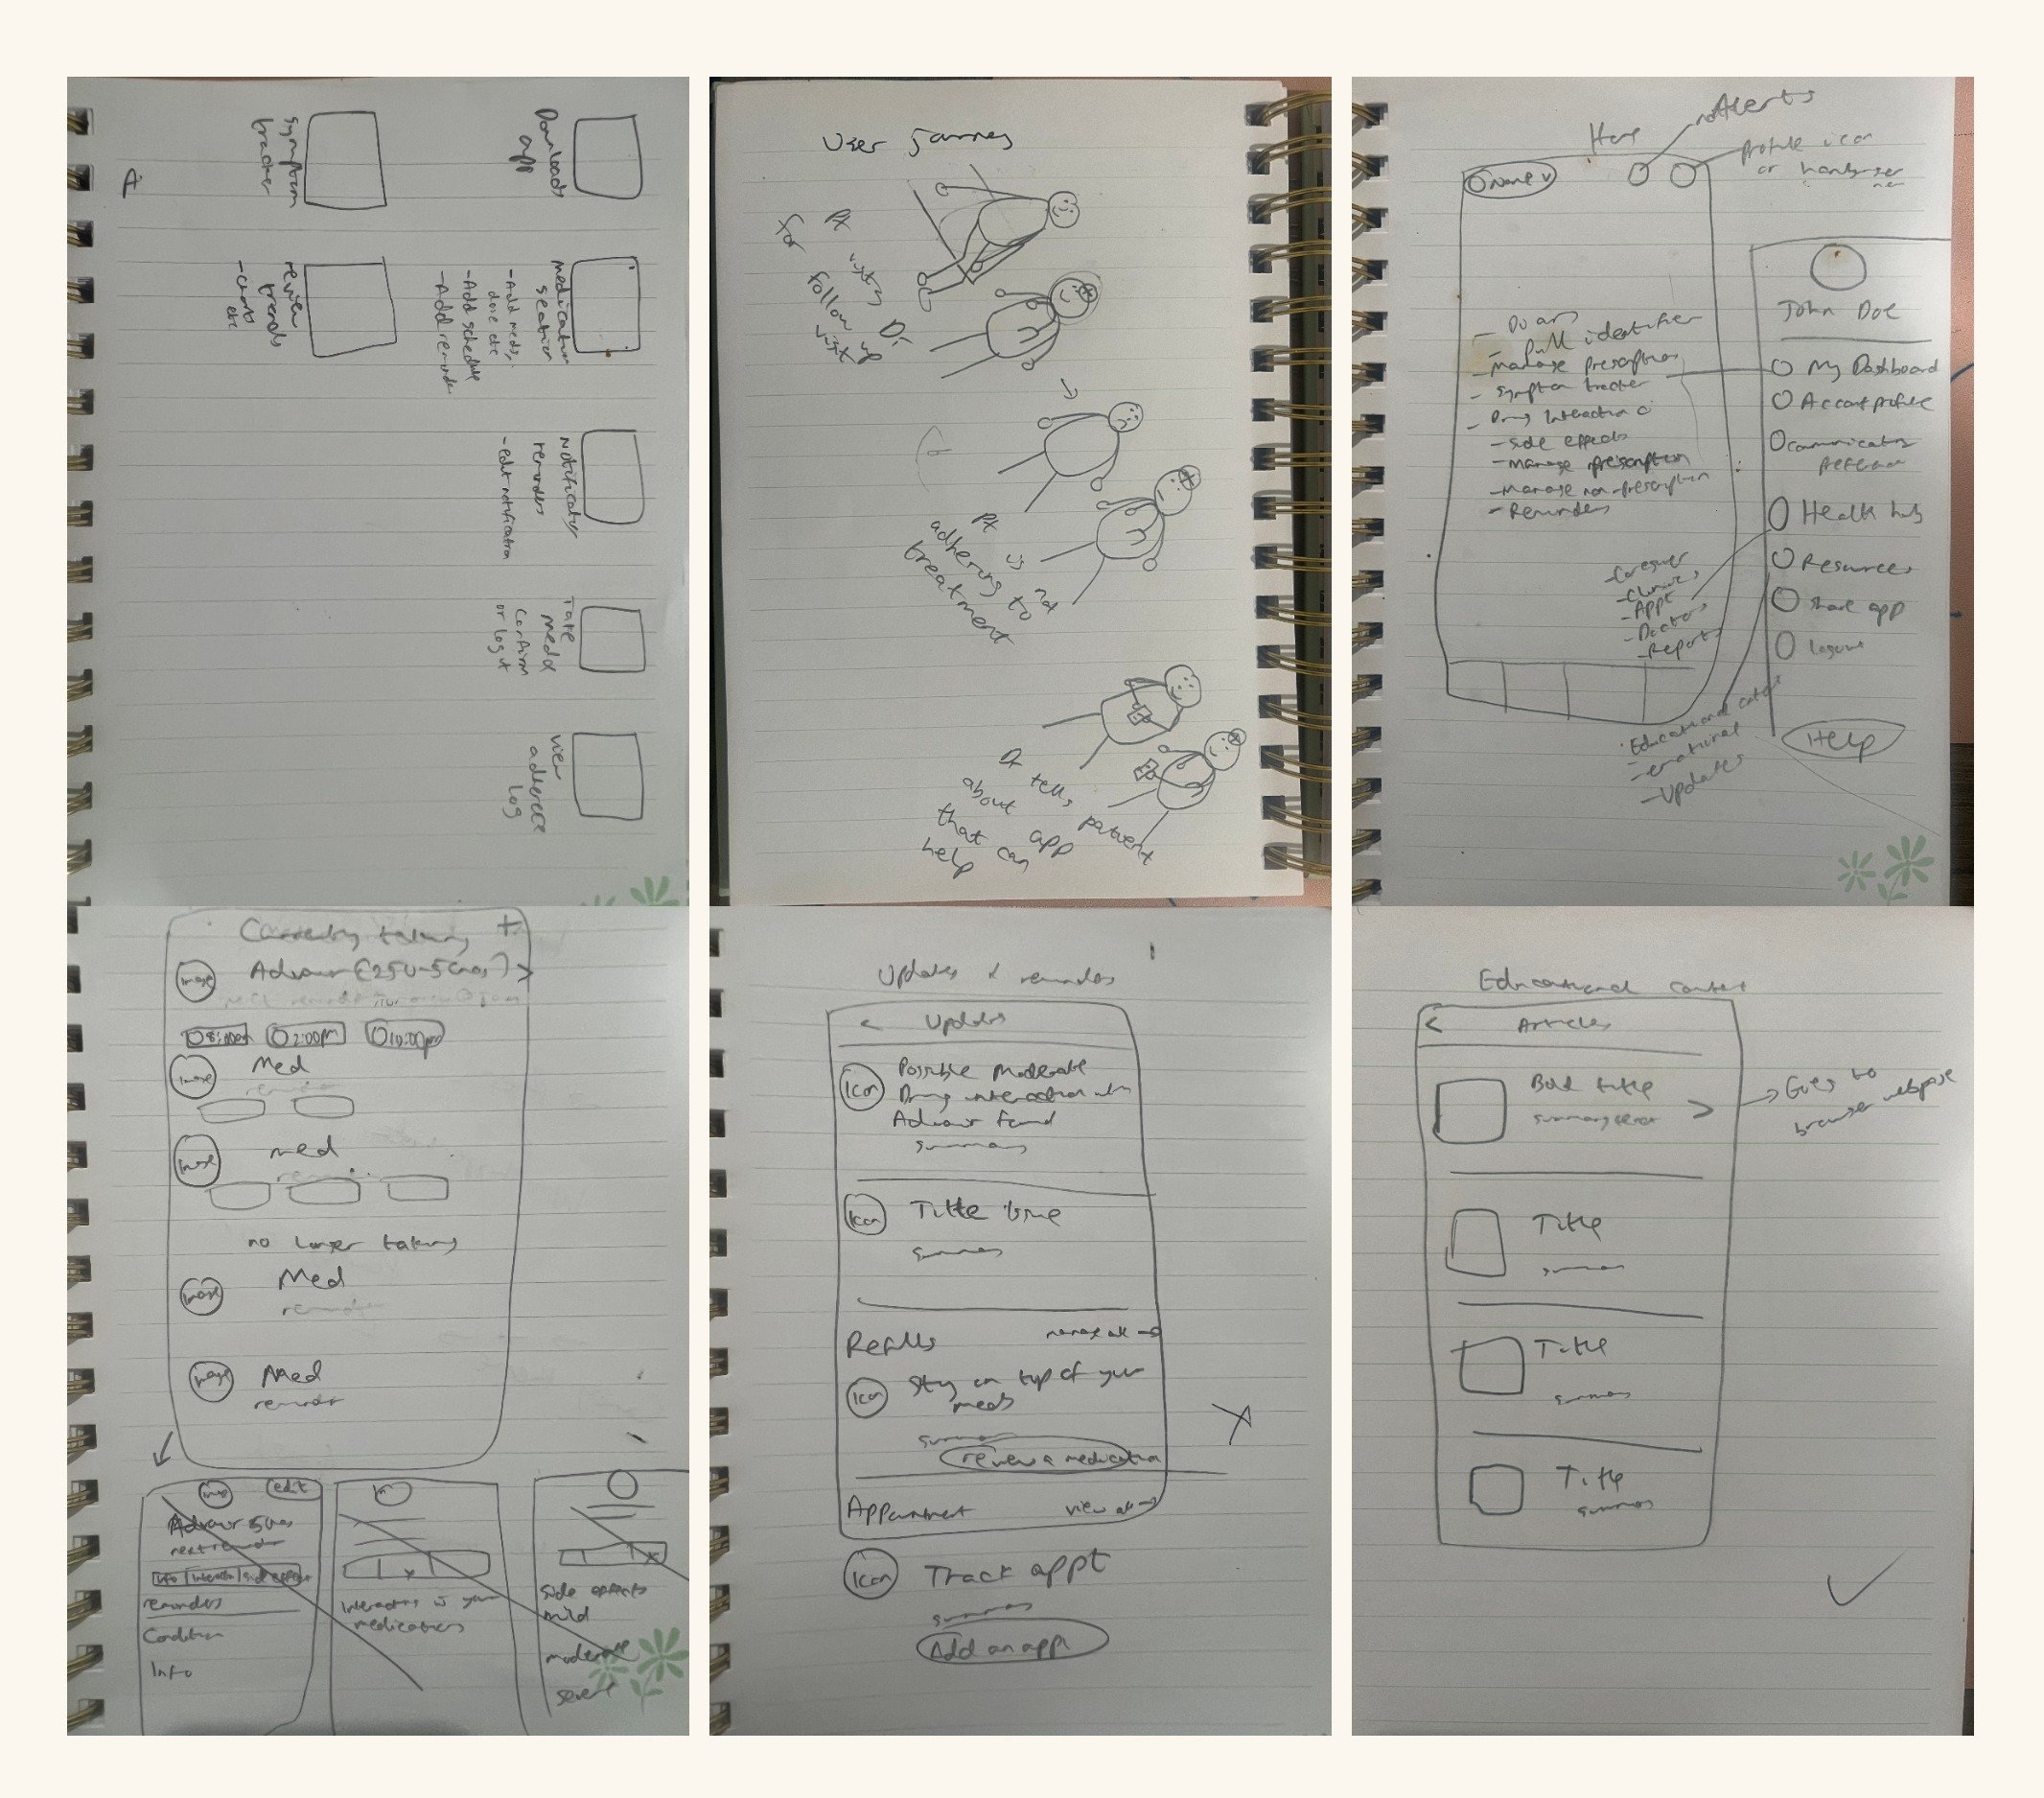 Downloads
app
medication
section
-Add meds,
dose etc
-Add schedule
-Add reminder
Notification
reminders
-edit notification
Take
meds
confirm
or log it
view
adherence
log
Symptom
tracker
review
trends
-charts
etc
A
User journey
PX visits Dr
for follow up
visit
PX is not
adhering to
treatment
Dr tells patient
about app
that can
help
Alerts
Home
profile icon
or hamburger
Name v
- pill identifier
- Manage prescription
- Symptom tracker
- Drug interaction
- side effects
- Manage prescription
- Manage non-prescription
- Reminders
- Caregiver
- Clinics
- Appt
- Doctors
- Reports
John Doe
My Dashboard
Account profile
Communication
Health hub
Resources
Share app
logout
Help
- Educational
- emotional
- Updates
Currently taking +
Image Advair (250-5 >
8:00am 2:00pm 10:00pm
Image Med
Image med
no longer taking
Image Med
reminder
Image Med
reminder
Image edit
Advair
next reminder
Info Interaction side effects
reminders
Condition
Info
Interactions your
medications
side effects
mild
moderate
severe
Updates & reminders
< Updates
Icon Possible Moderate
Drug interaction
Advair found
summary
Icon Title
summary
Refills manage all →
Icon Stay on top of your
meds
summary
review a medication
Appointment view all →
Icon Track appt
summary
Add an appt
Educational content
< Articles
Bold title
summary >
→ Goes to
browser webpage
Title
summary
Title
summary
Title
summary